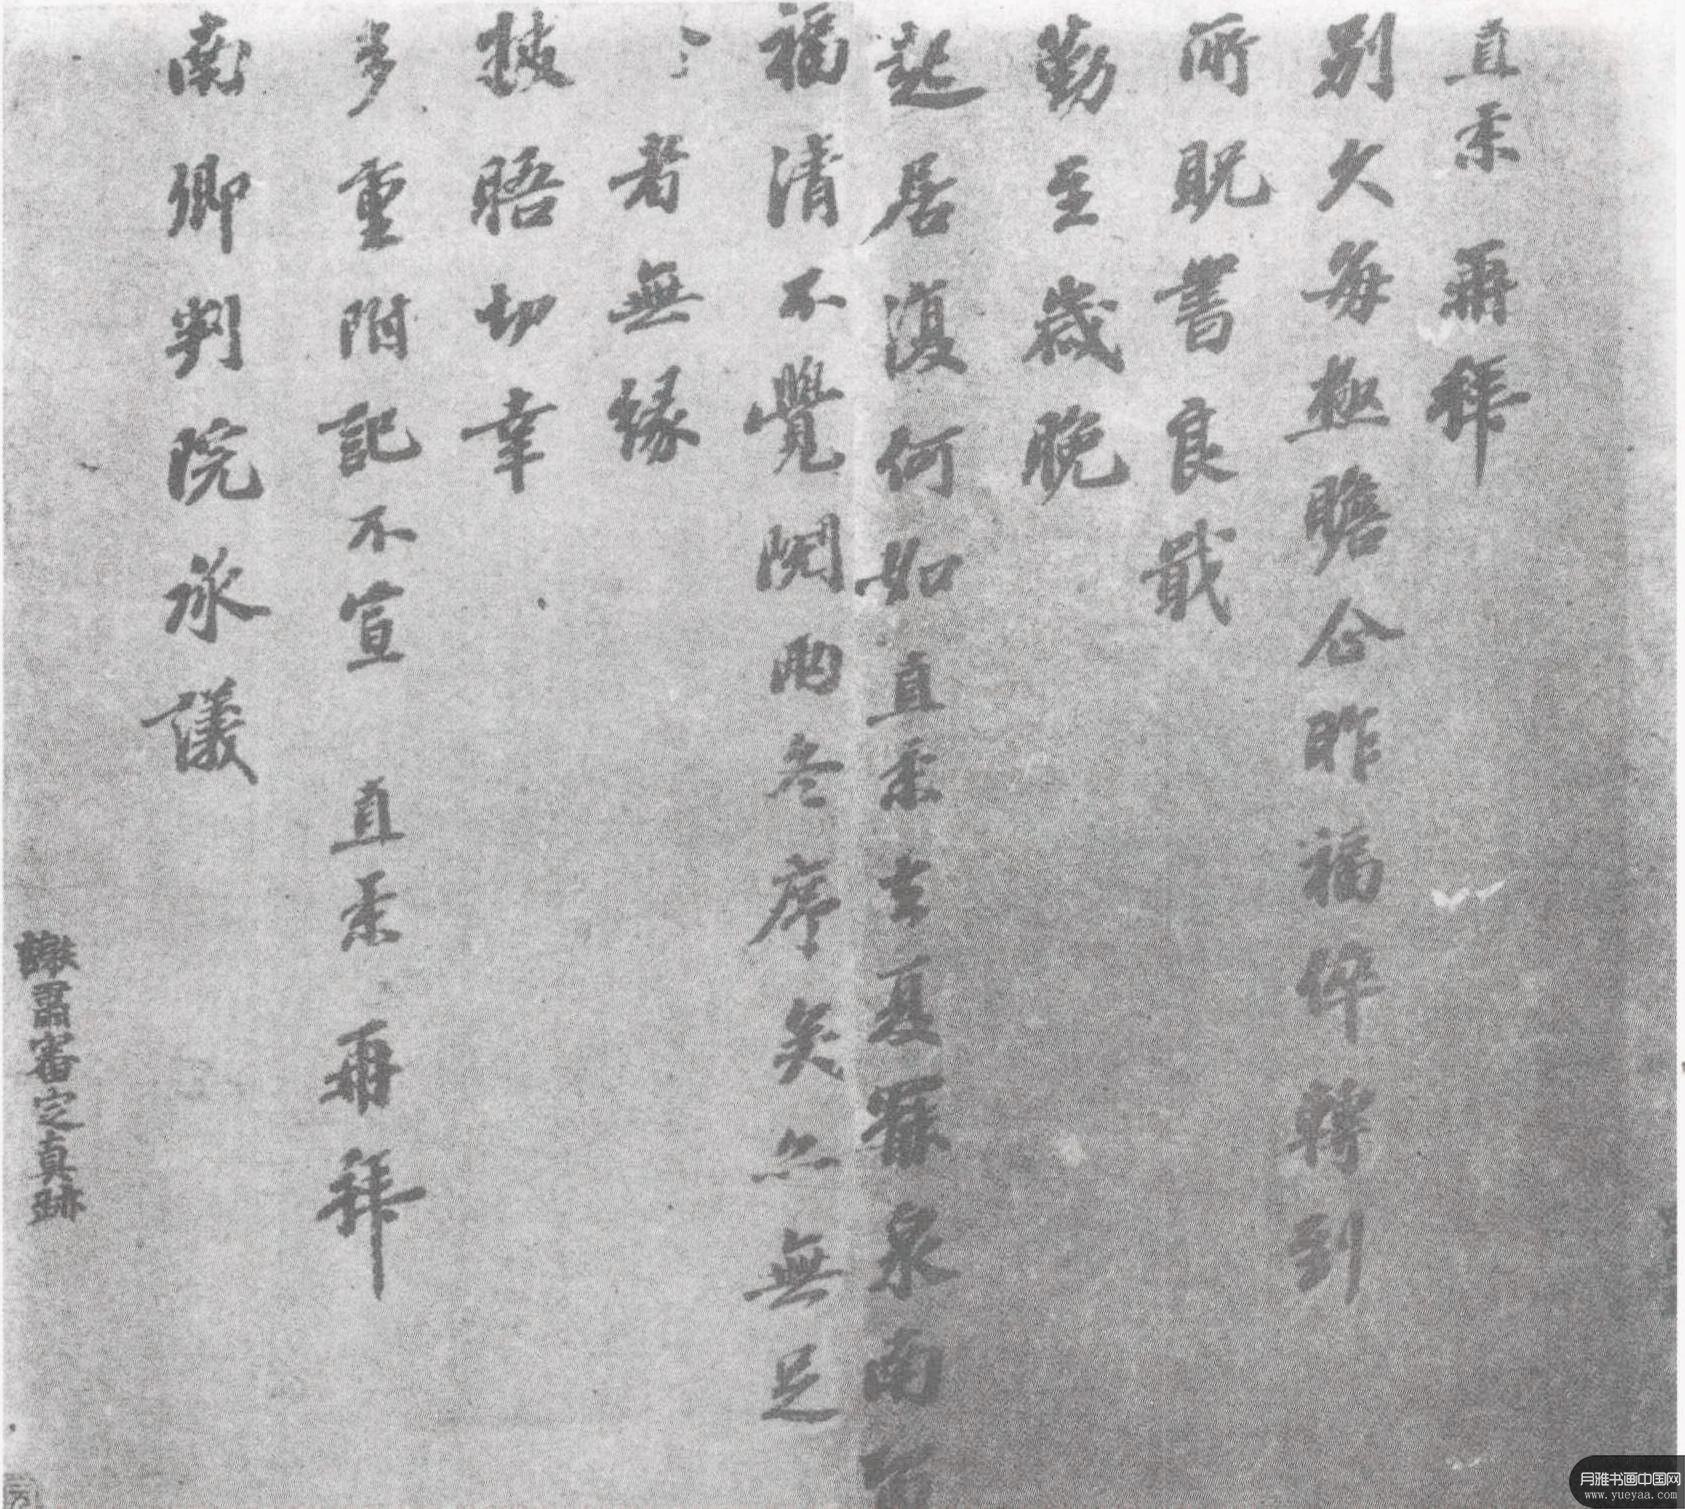 直柔再拜
別久每極瞻企昨福倅轉到
所貺書良戢
勤至歲晚
起居復何如直柔去夏罷泉南
福清不覺閱兩冬序矣亦無足
者無緣
披晤切幸
多重附記不宣 直柔 再拜
南卿判院承議
譙肅審定真跡
月雅书画中国网
www.yueyaa.com